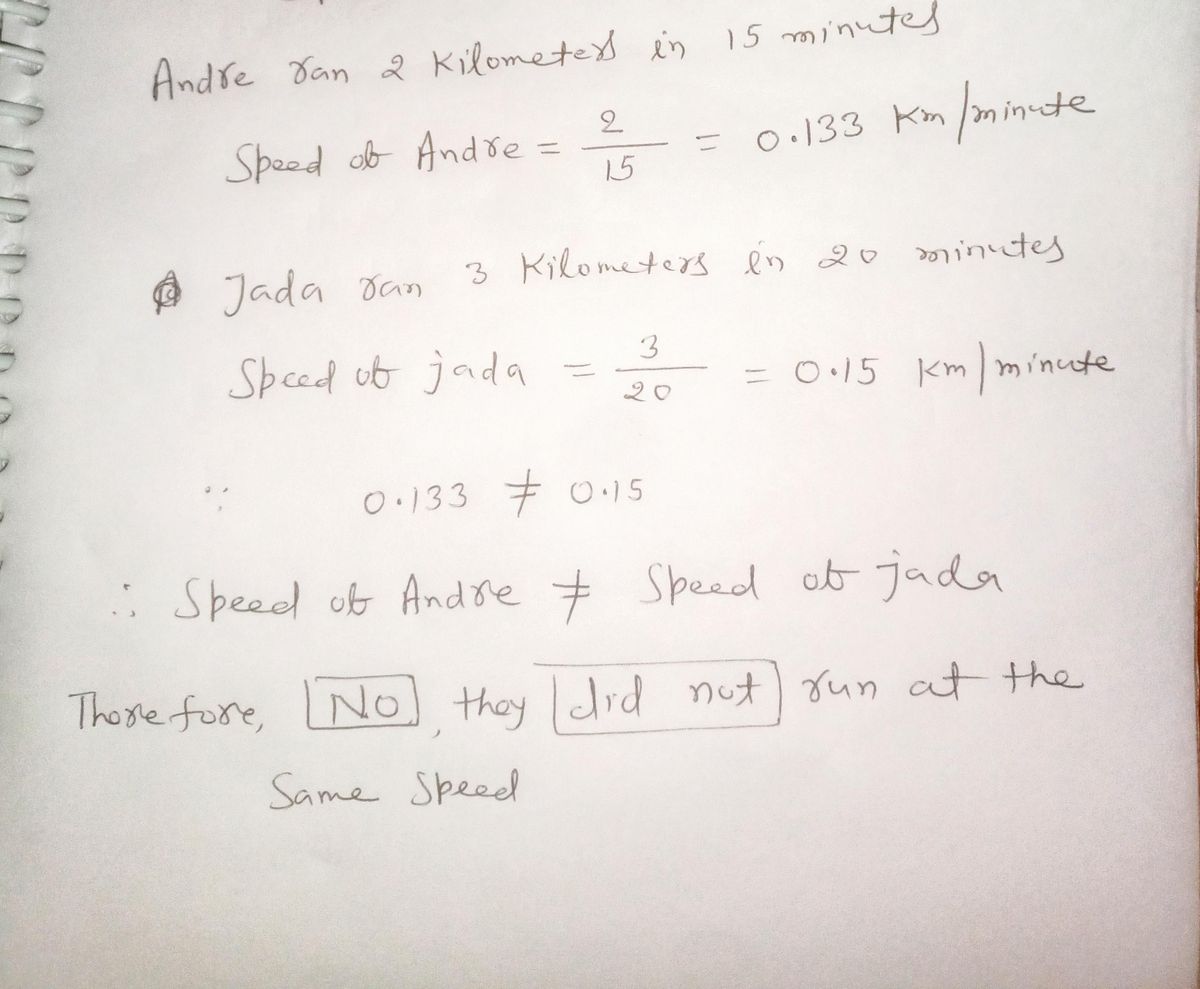 Andre ran 2 Kilometers in 15 minutes
Speed of Andre = 2/15 = 0.133 Km/minute
Jada ran 3 Kilometers in 20 minutes
Speed of jada = 3/20 = 0.15 Km/minute
∵ 0.133 ≠ 0.15
∴ Speed of Andre ≠ Speed of jada
Therefore, NO, they did not run at the
Same Speed